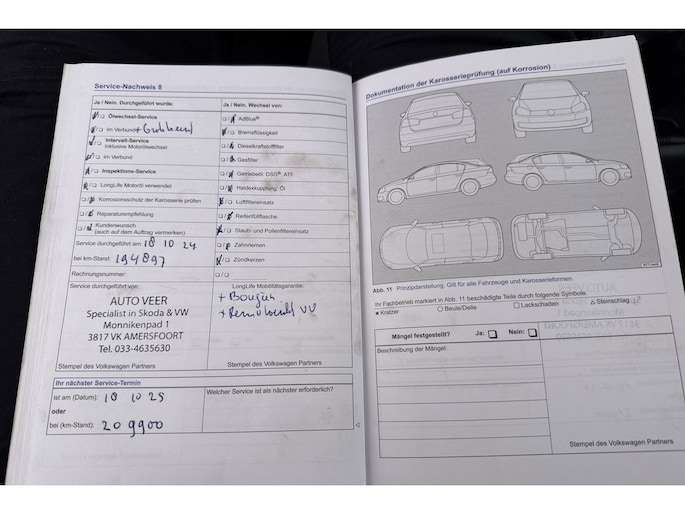 Service-Nachweis 8
Ja / Nein. Durchgeführt wurde:
Ölwechsel-Service
im Verbund
Intervall-Service
inklusive Motorölwechsel
im Verbund
Inspektions-Service
LongLife Motoröl verwendet
Korrosionsschutz der Karosserie prüfen
Reparaturempfehlung
Kundenwunsch
(auch auf dem Auftrag vermerken)
Service durchgeführt am: 18 10 24
bei km-Stand: 194897
Rechnungsnummer:
Ja / Nein. Wechsel von:
AdBlue®
Bremsflüssigkeit
Dieselkraftstofffilter
Gasfilter
Getriebeöl: DSG® ATF
Haldexkupplung: Öl
Luftfiltereinsatz
Reifenfüllflasche
Staub- und Pollenfiltereinsatz
Zahnriemen
Zündkerzen
Service durchgeführt von:
AUTO VEER
Specialist in Skoda & VW
Monnikenpad 1
3817 VK AMERSFOORT
Tel. 033-4635630
Stempel des Volkswagen Partners
LongLife Mobilitätsgarantie:
+ Bougies
Stempel des Volkswagen Partners
Ihr nächster Service-Termin
ist am (Datum): 18 10 25
oder
bei (km-Stand): 209900
Welcher Service ist als nächster erforderlich?
Dokumentation der Karosserieprüfung (auf Korrosion)
Abb. 11 Prinzipdarstellung. Gilt für alle Fahrzeuge und Karosserieformen.
Ihr Fachbetrieb markiert in Abb. 11 beschädigte Teile durch folgende Symbole:
× Kratzer ○ Beule/Delle □ Lackschaden △ Steinschlag
Mängel festgestellt? Ja: Nein:
Beschreibung der Mängel:
Stempel des Volkswagen Partners